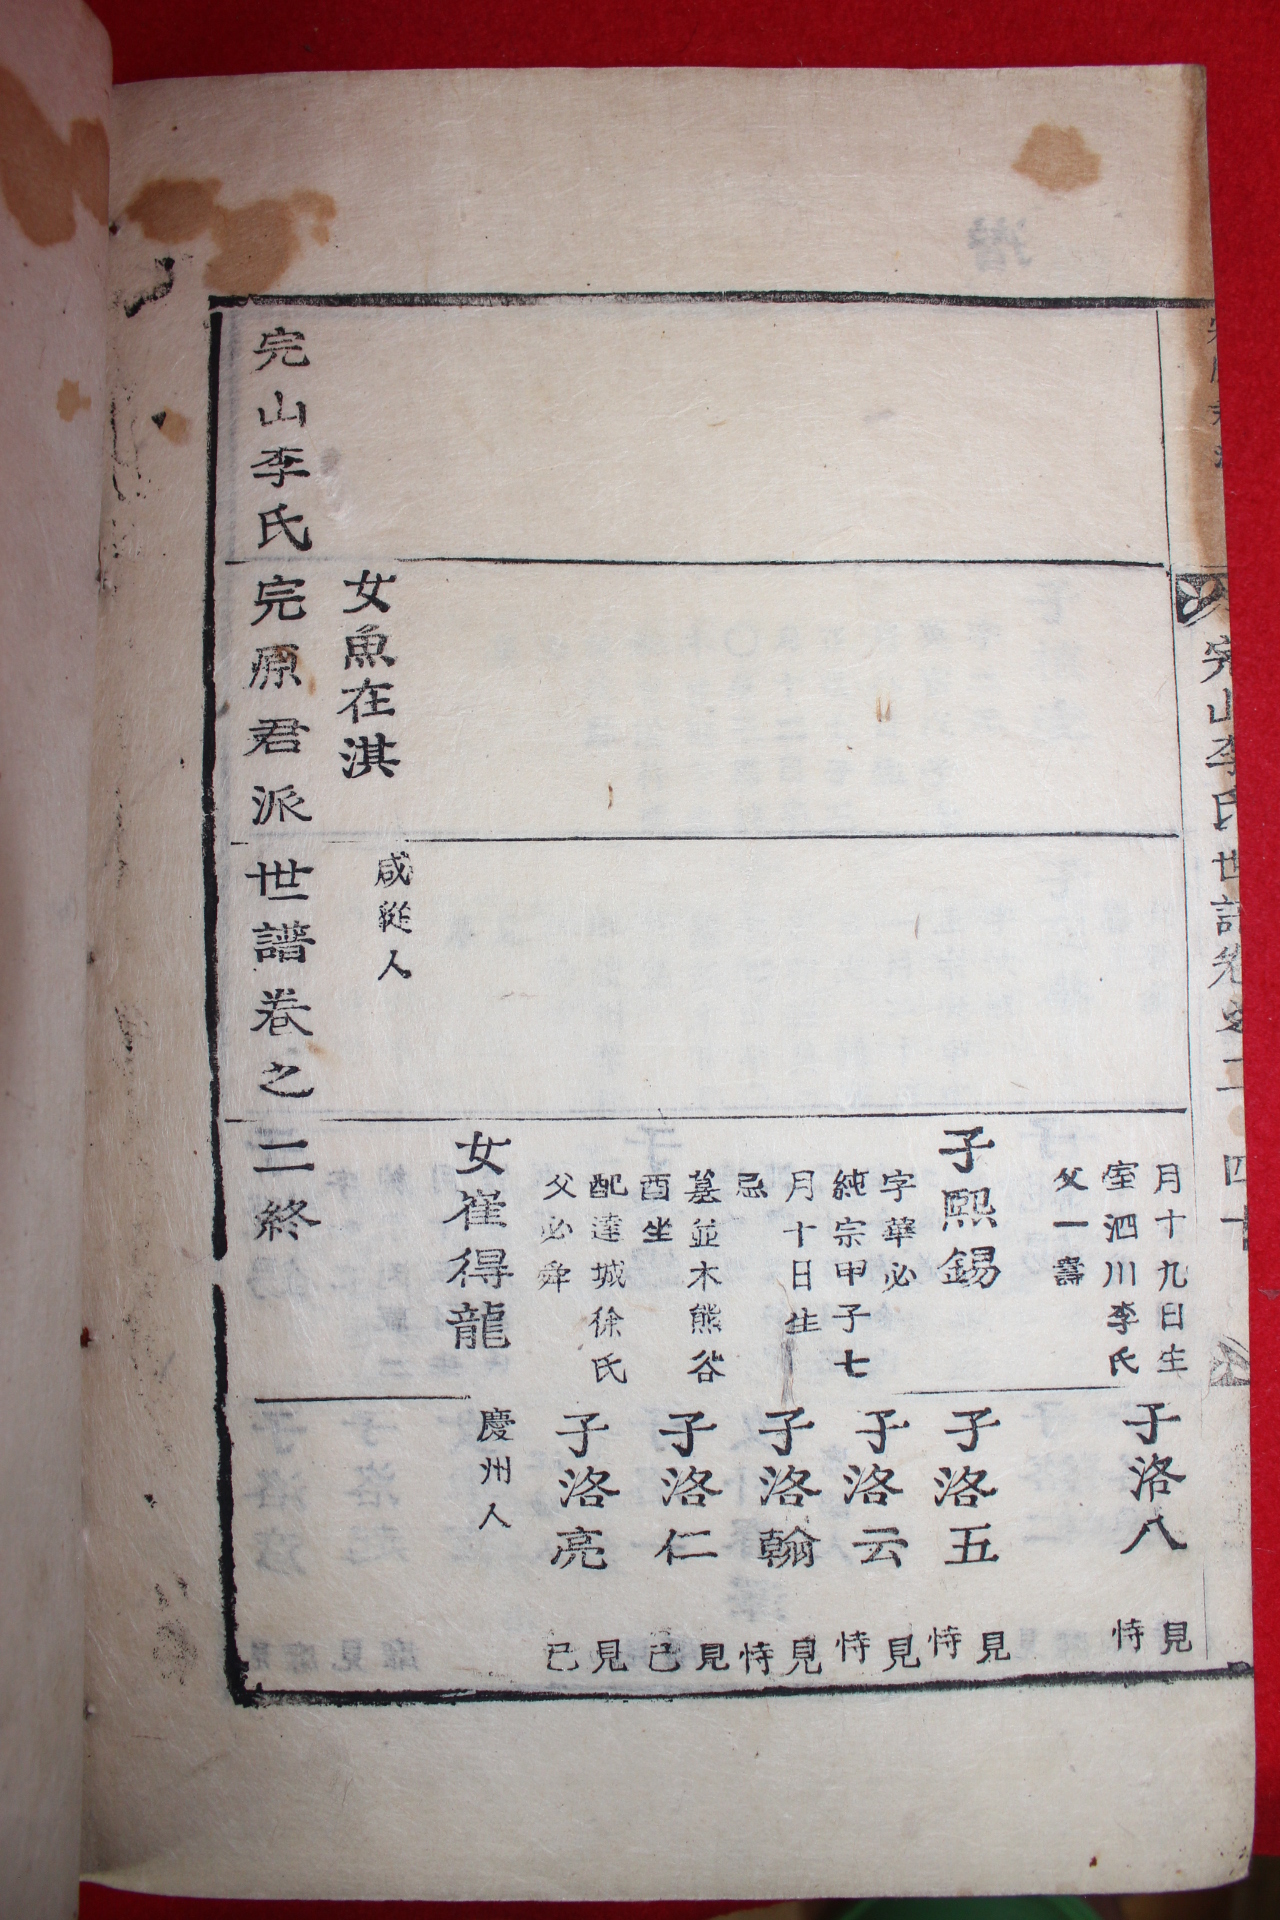 完山李氏世譜卷之二 四十
月十九日生
室泗川李氏
父一壽
子熙錫
字華必
純宗甲子七
月十日生
忌
墓並木熊谷
酉坐
配達城徐氏
父必舜
女崔得龍
子洛八 見恃
子洛五 見恃
子洛云 見恃
子洛翰 見恃
子洛仁 見已
子洛亮 見已
慶州人
女魚在淇
咸從人
完山李氏完原君派世譜卷之二終